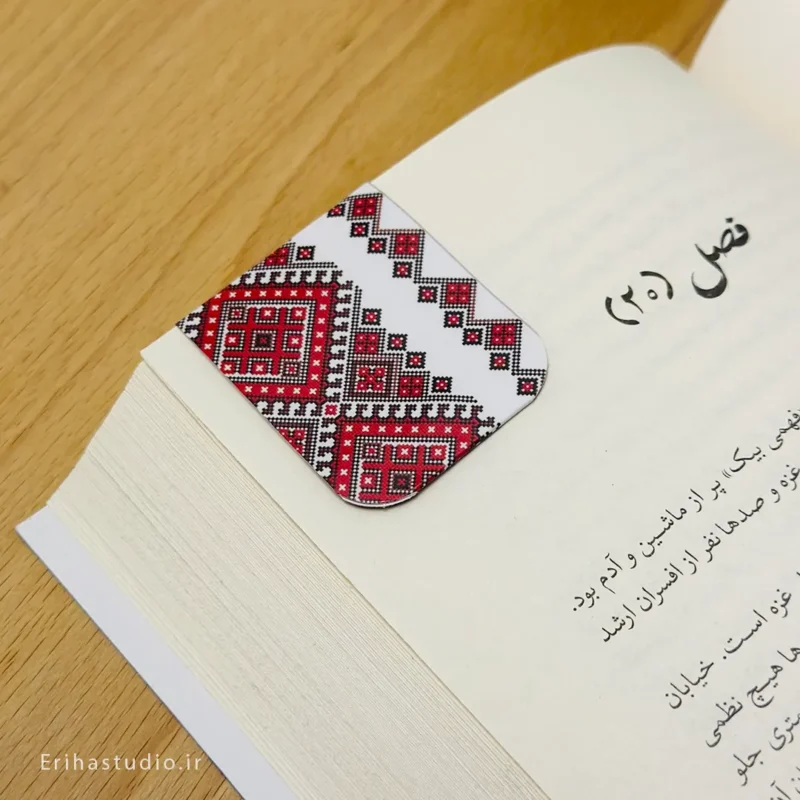 فصل (۲۰)
فهمی بیک» پر از ماشین و آدم بود.
غزه و صدها نفر از افسران ارشد
غزه است. خیابان
ها هیچ نظمی
جلو
Erihastudio.ir